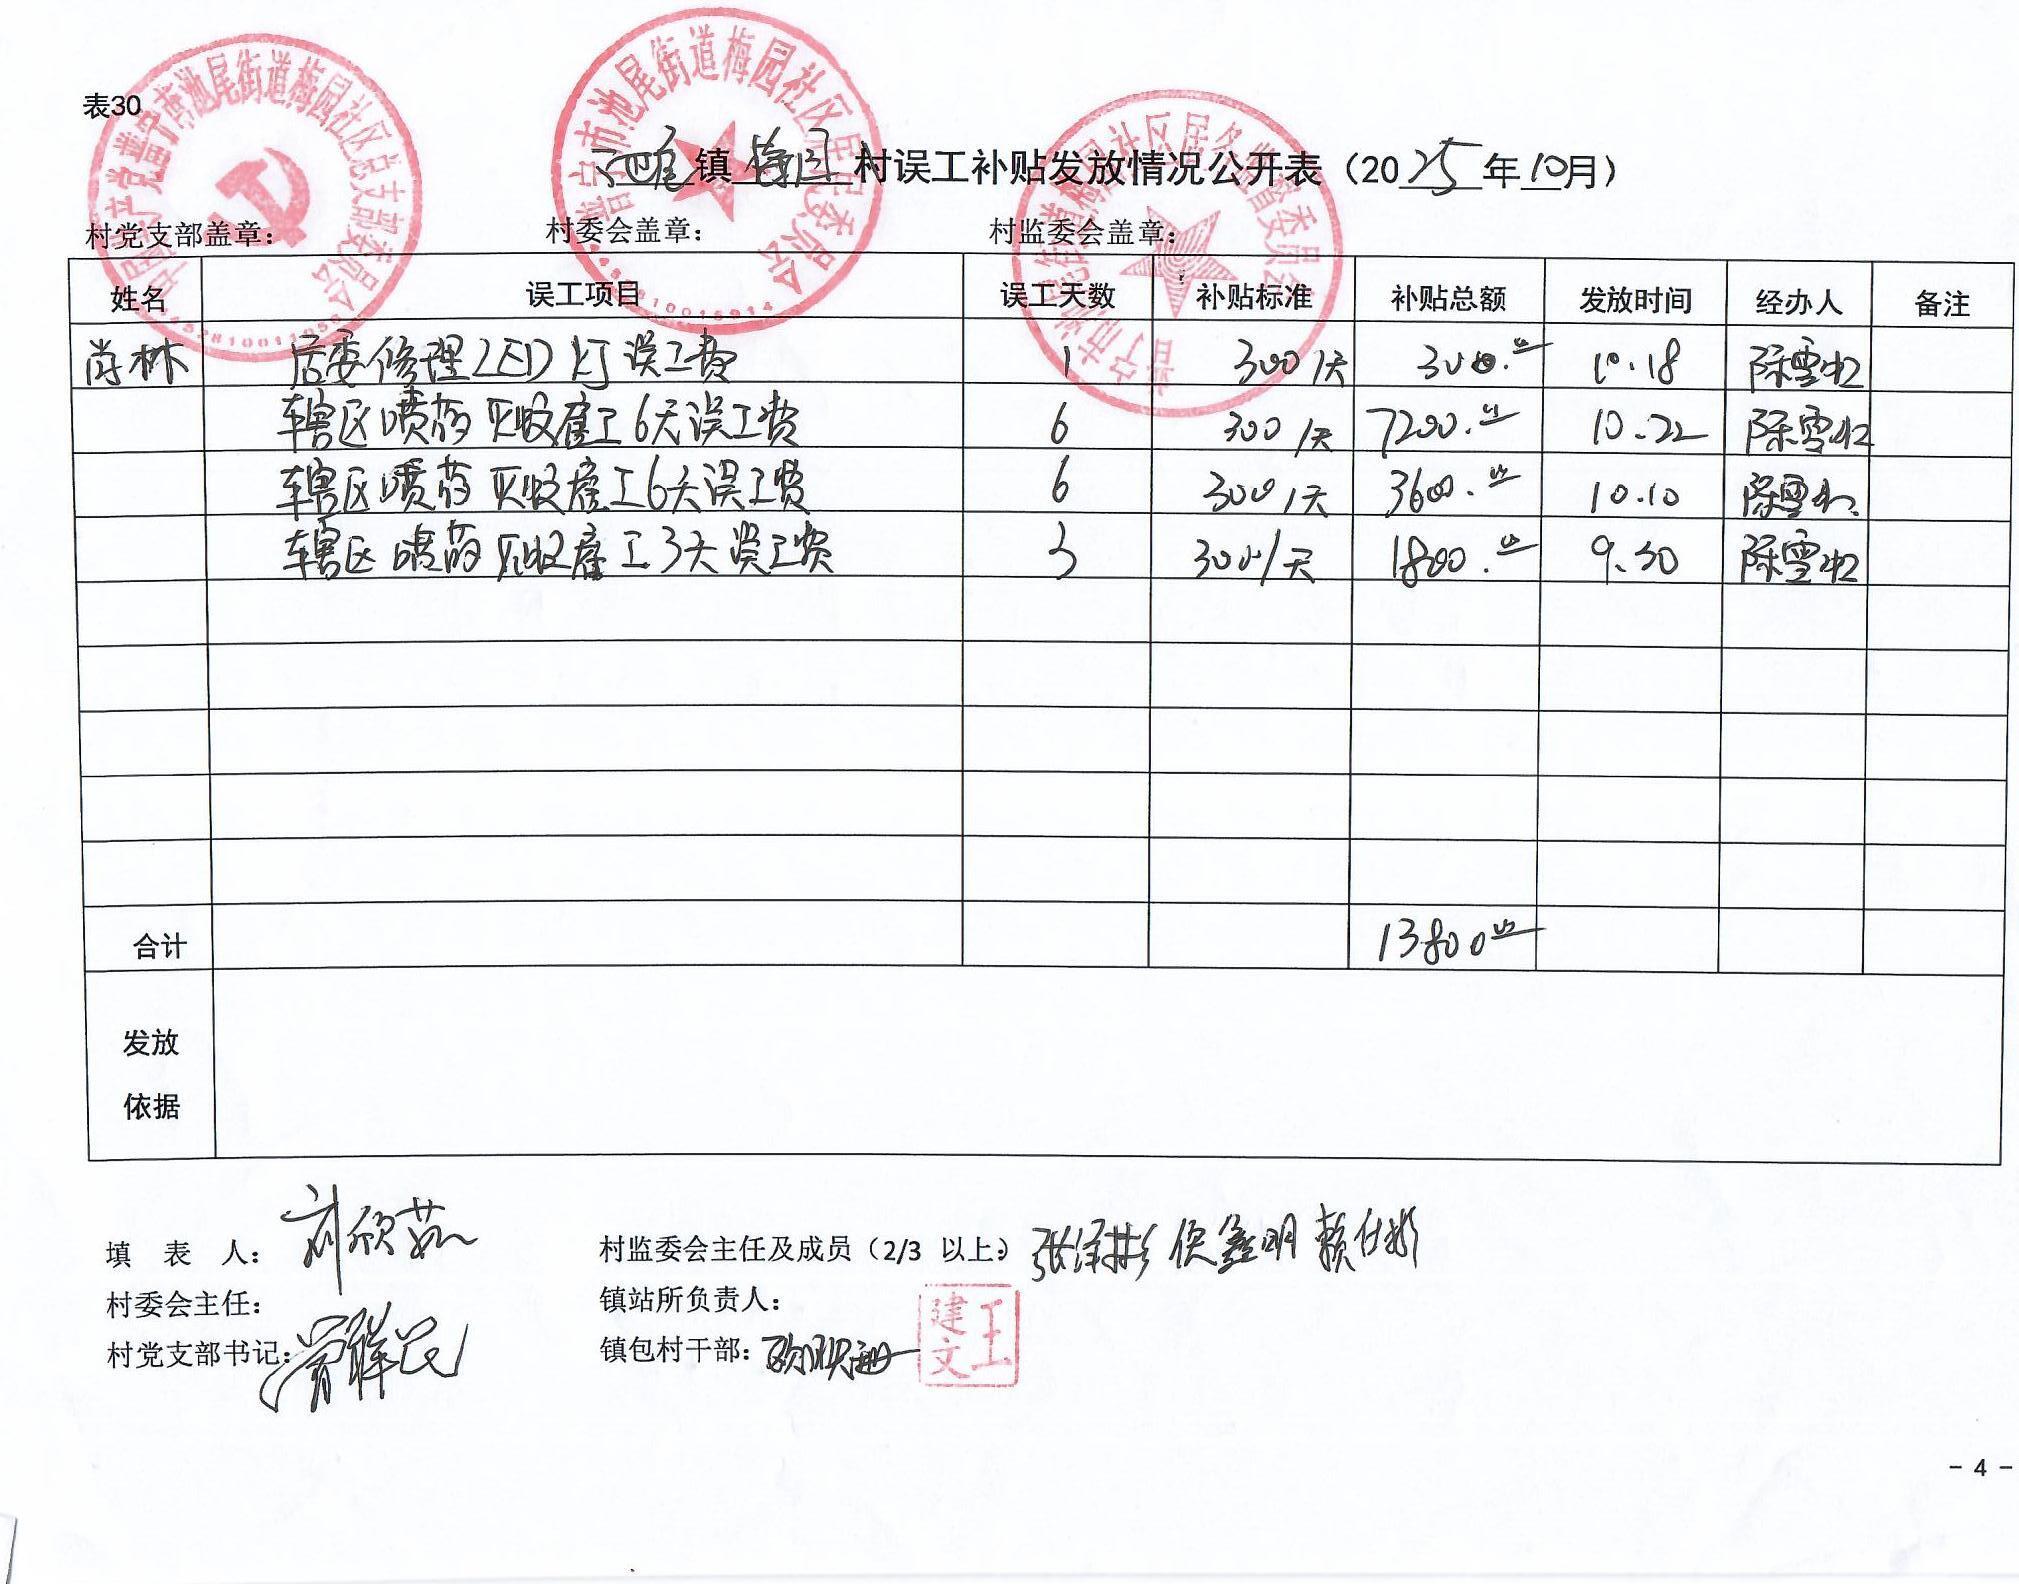 表30
池尾镇梅园村误工补贴发放情况公开表（2025年10月）
村党支部盖章： 村委会盖章： 村监委会盖章：
普宁市池尾街道梅园社区居民委员会
姓名 误工项目 误工天数 补贴标准 补贴总额 发放时间 经办人 备注
肖林 居委修理LED灯误工费 1 300/天 300.00 10.18 陈雪虹
辖区喷药灭蚊雇工6天误工费 6 300/天 7200.00 10.22 陈雪虹
辖区喷药灭蚊雇工6天误工费 6 300/天 3600.00 10.10 陈雪虹
辖区喷药灭蚊雇工3天误工费 3 300/天 1800.00 9.30 陈雪虹
合计 13800.00
发放
依据
填 表 人： 村监委会主任及成员（2/3 以上）：张泽彬
村委会主任： 镇站所负责人：
村党支部书记： 镇包村干部：
王建文
- 4 -